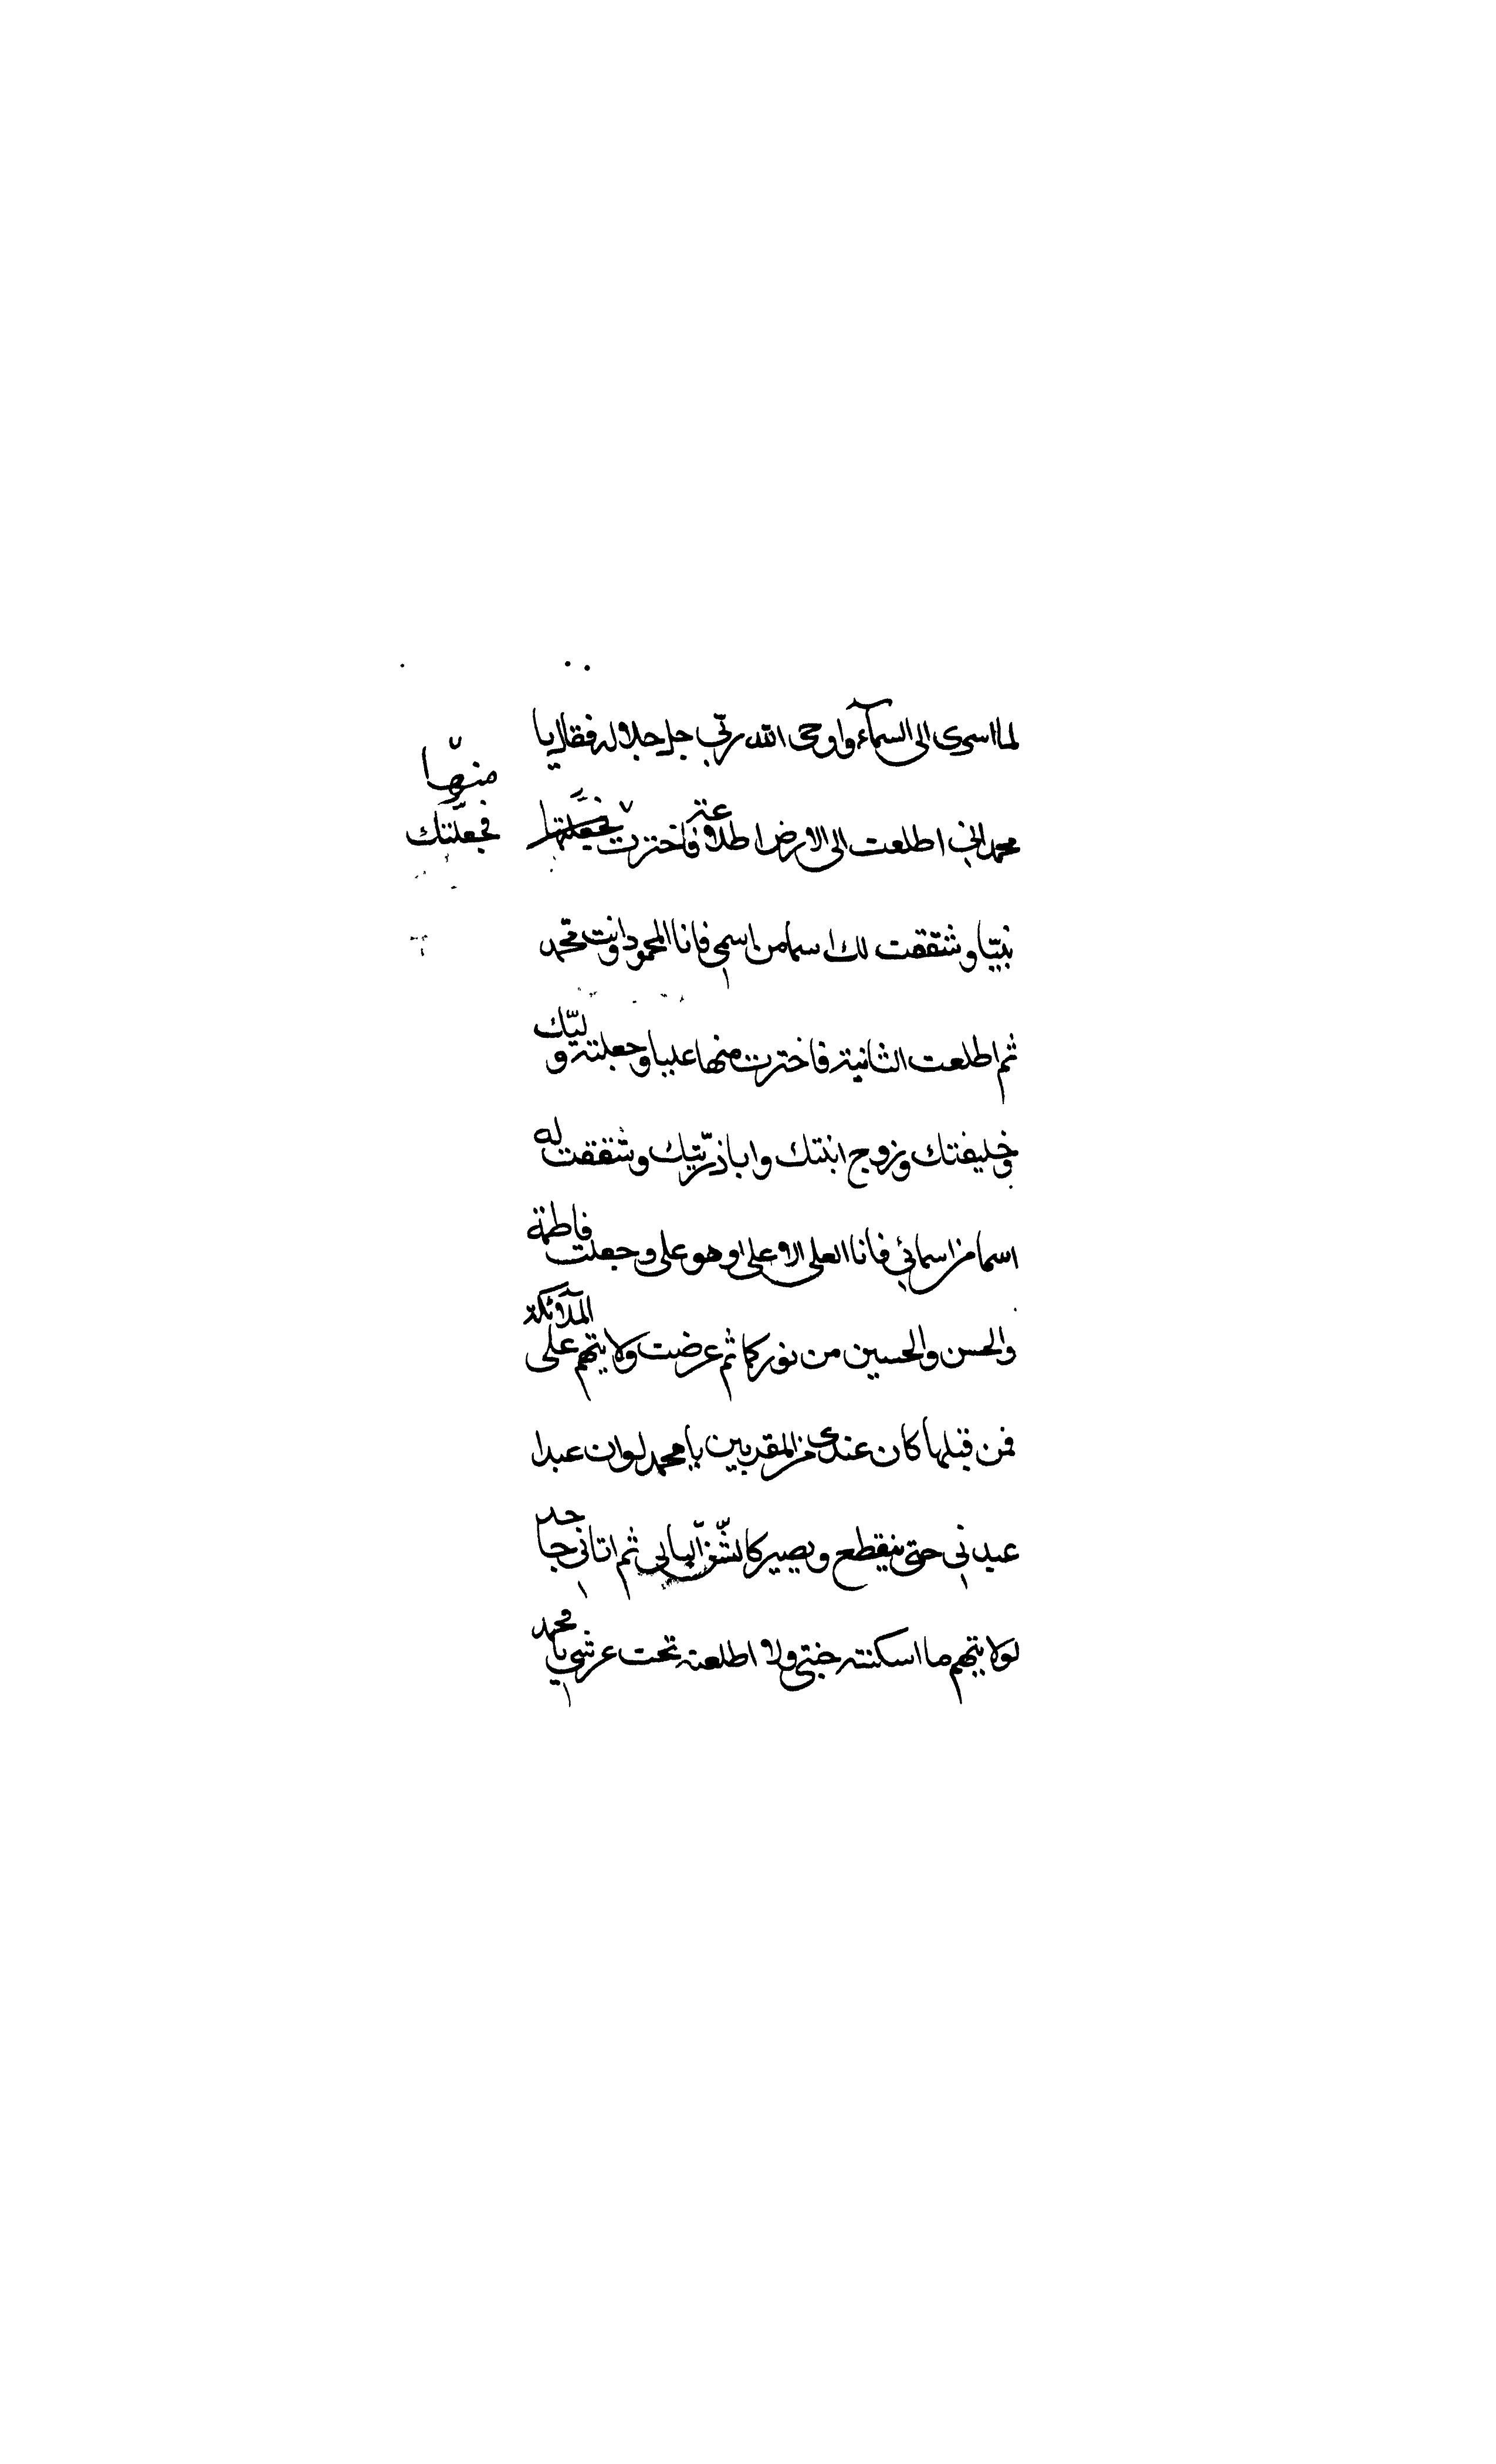 لما اسرى الى السمآء واوحى الله ربّي جل جلاله فقال يا
محمد اني اطلعت الى الارض اطلاعة فاخترت فجعلتها
منهّا
فجعلّتك
نبيّا وشققت لك اسما من اسمي فانا المحمود وانت محمد
ثم اطلعت الثانية فاخترت منها عليا وجعلته وليّك
وخليفتك وزوج ابنتك وابا ذرّيّتك وشققت له
اسما من اسمائي فانا العلي الاعلى وهو علي وجعلت فاطمة
والحسن والحسين من نوركما ثم عرضت ولايتهم على الملآئكة
فمن قبلها كان عندي من المقربين يا محمد لو ان عبدا
عبدني حتى ينقطع ويصير كالشّنّ البالي ثم اتاني جاحد
لولايتهم ما اسكنته جنتي ولا اطلعته تحت عرشي يا محمد